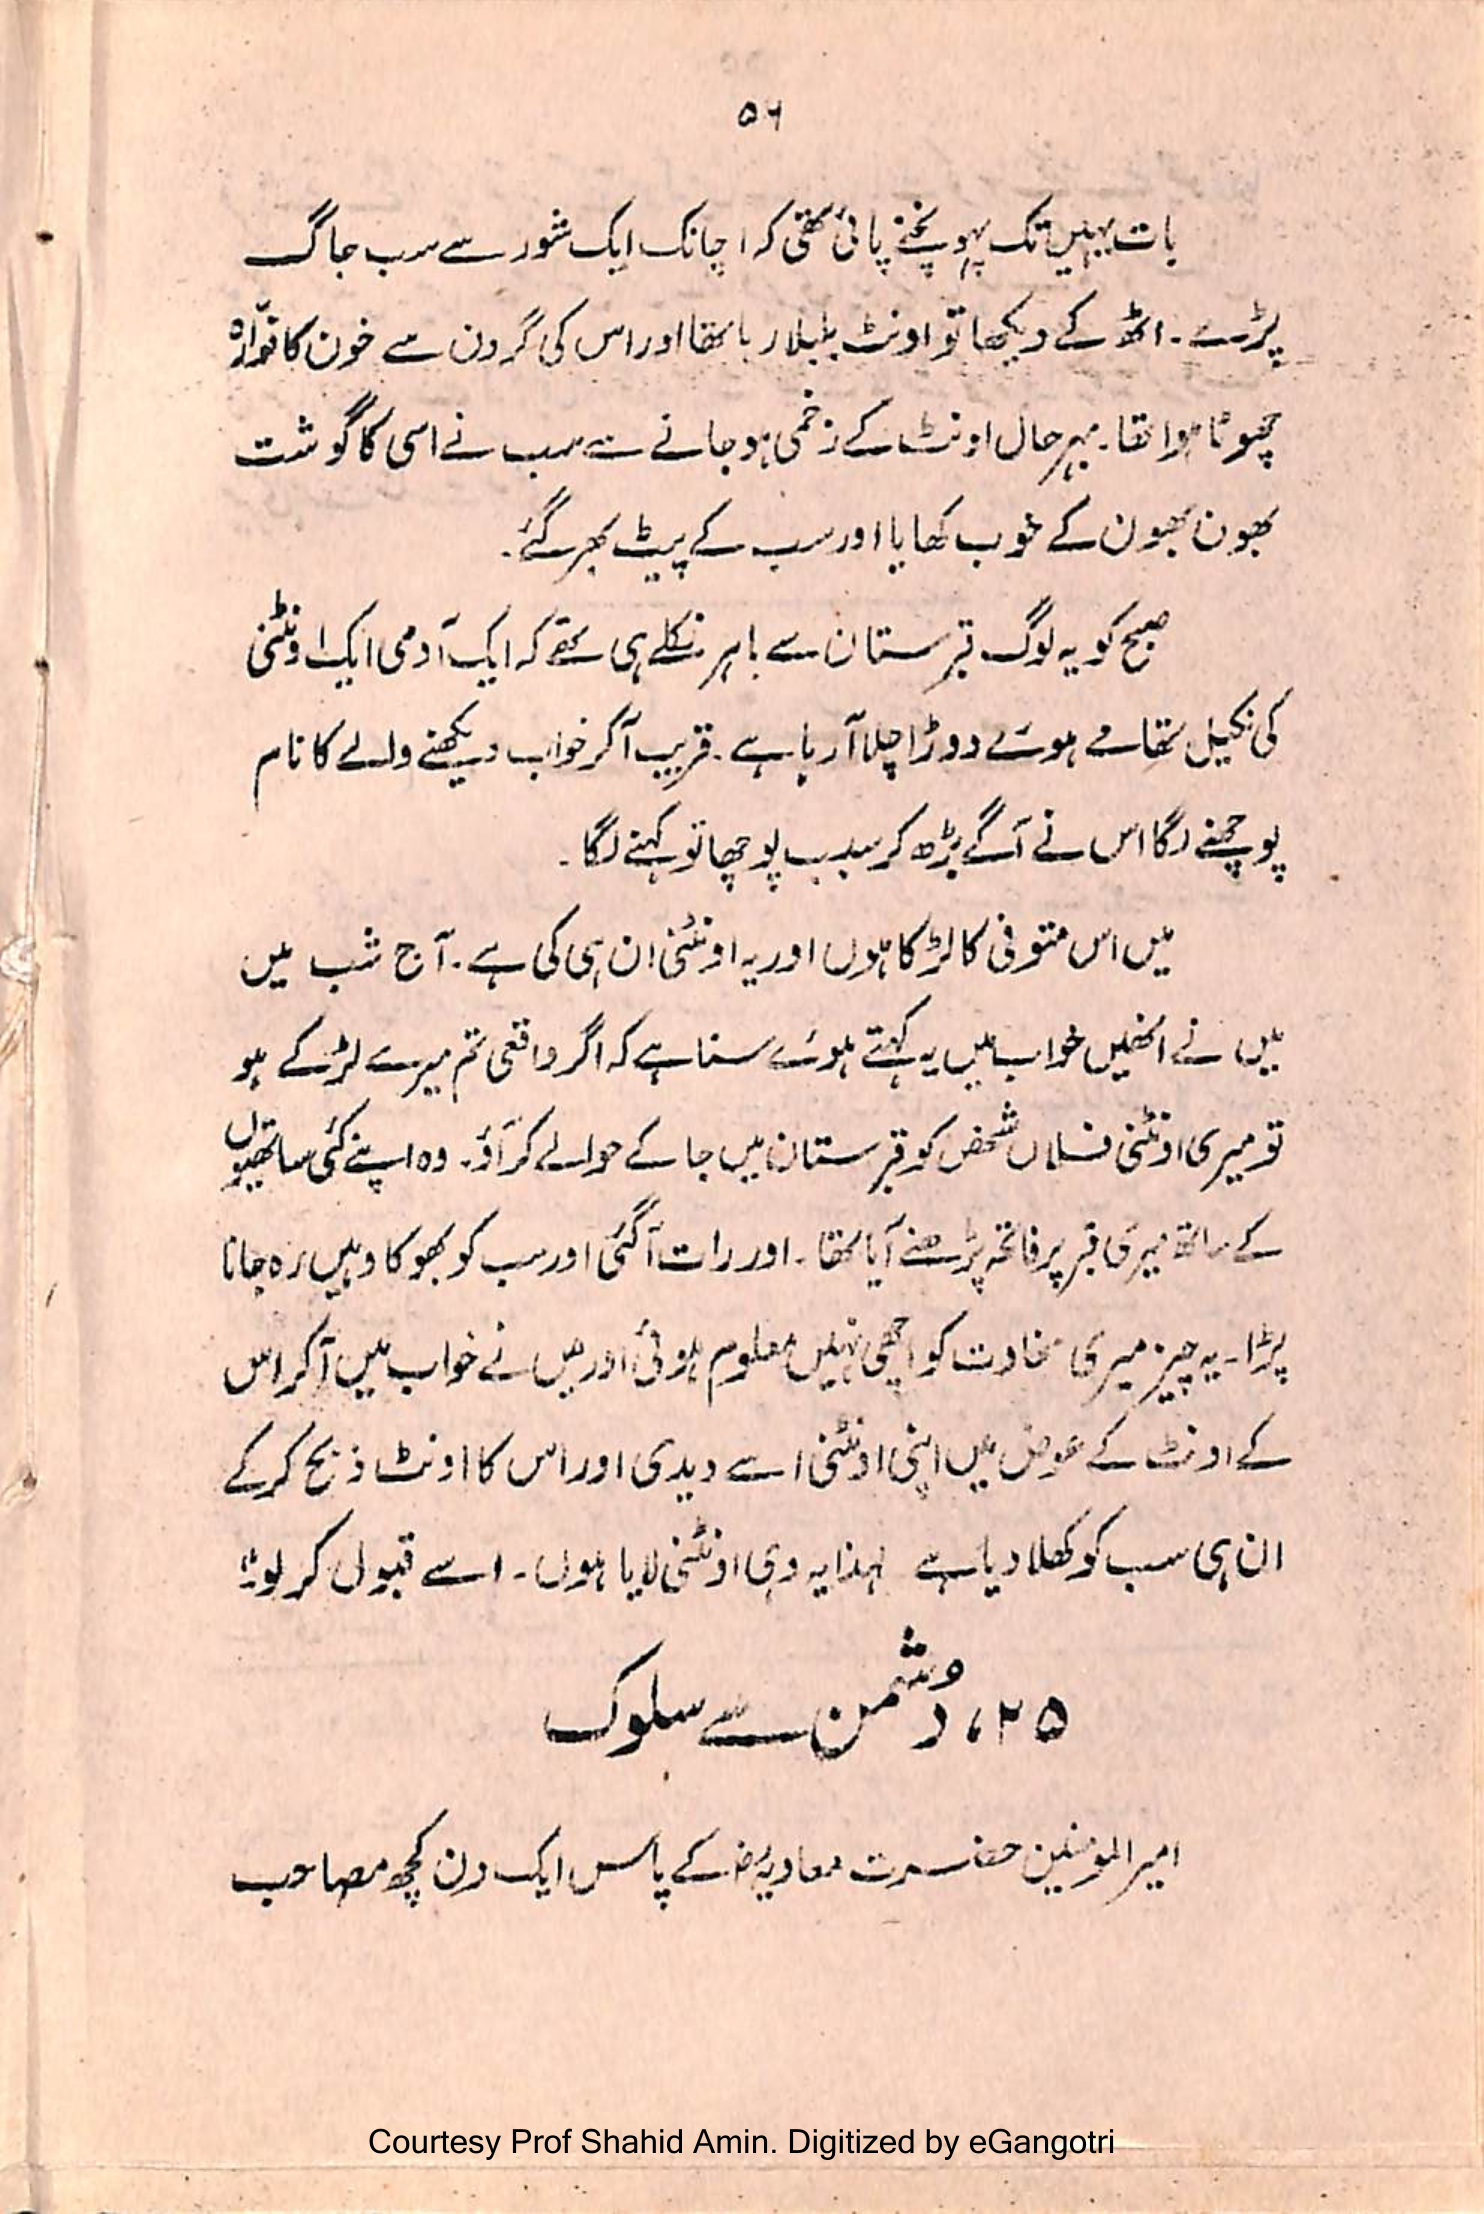 ۵۶
بات یہیں تک پہونچنے پائی تھی کہ اچانک ایک شور سے سب جاگ
پڑے۔ اٹھ کے دیکھا تو اونٹ بلبلا رہا تھا اور اس کی گردن سے خون کا فوّارہ
چھوٹا ہوا تھا۔ بہرحال اونٹ کے زخمی ہو جانے سے سب نے اسی کا گوشت
بھون بھون کے خوب کھایا اور سب کے پیٹ بھر گئے۔
صبح کو یہ لوگ قبرستان سے باہر نکلے ہی تھے کہ ایک آدمی ایک اونٹنی
کی نکیل تھامے ہوئے دوڑا چلا آ رہا ہے۔ قریب آ کر خواب دیکھنے والے کا نام
پوچھنے لگا اس نے آگے بڑھ کر سبب پوچھا تو کہنے لگا۔
میں اس متوفی کا لڑکا ہوں اور یہ اونٹنی ان ہی کی ہے۔ آج شب میں
میں نے انھیں خواب میں یہ کہتے ہوئے سنا ہے کہ اگر واقعی تم میرے لڑکے ہو
تو میری اونٹنی فلاں شخص کو قبرستان میں جا کے حوالے کر آؤ۔ وہ اپنے کئی ساتھیوں
کے ساتھ میری قبر پر فاتحہ پڑھنے آیا تھا۔ اور رات آ گئی اور سب کو بھوکا وہیں رہ جانا
پڑا۔ یہ چیز میری سخاوت کو اچھی نہیں معلوم ہوئی اور میں نے خواب میں آ کر اس
کے اونٹ کے عوض میں اپنی اونٹنی اسے دیدی اور اس کا اونٹ ذبح کر کے
ان ہی سب کو کھلا دیا ہے لہذا یہ وہی اونٹنی لایا ہوں۔ اسے قبول کر لو"
۲۵، دشمن سے سلوک
امیر المومنین حضرت معاویہؓ کے پاس ایک دن کچھ مصاحب
Courtesy Prof Shahid Amin. Digitized by eGangotri